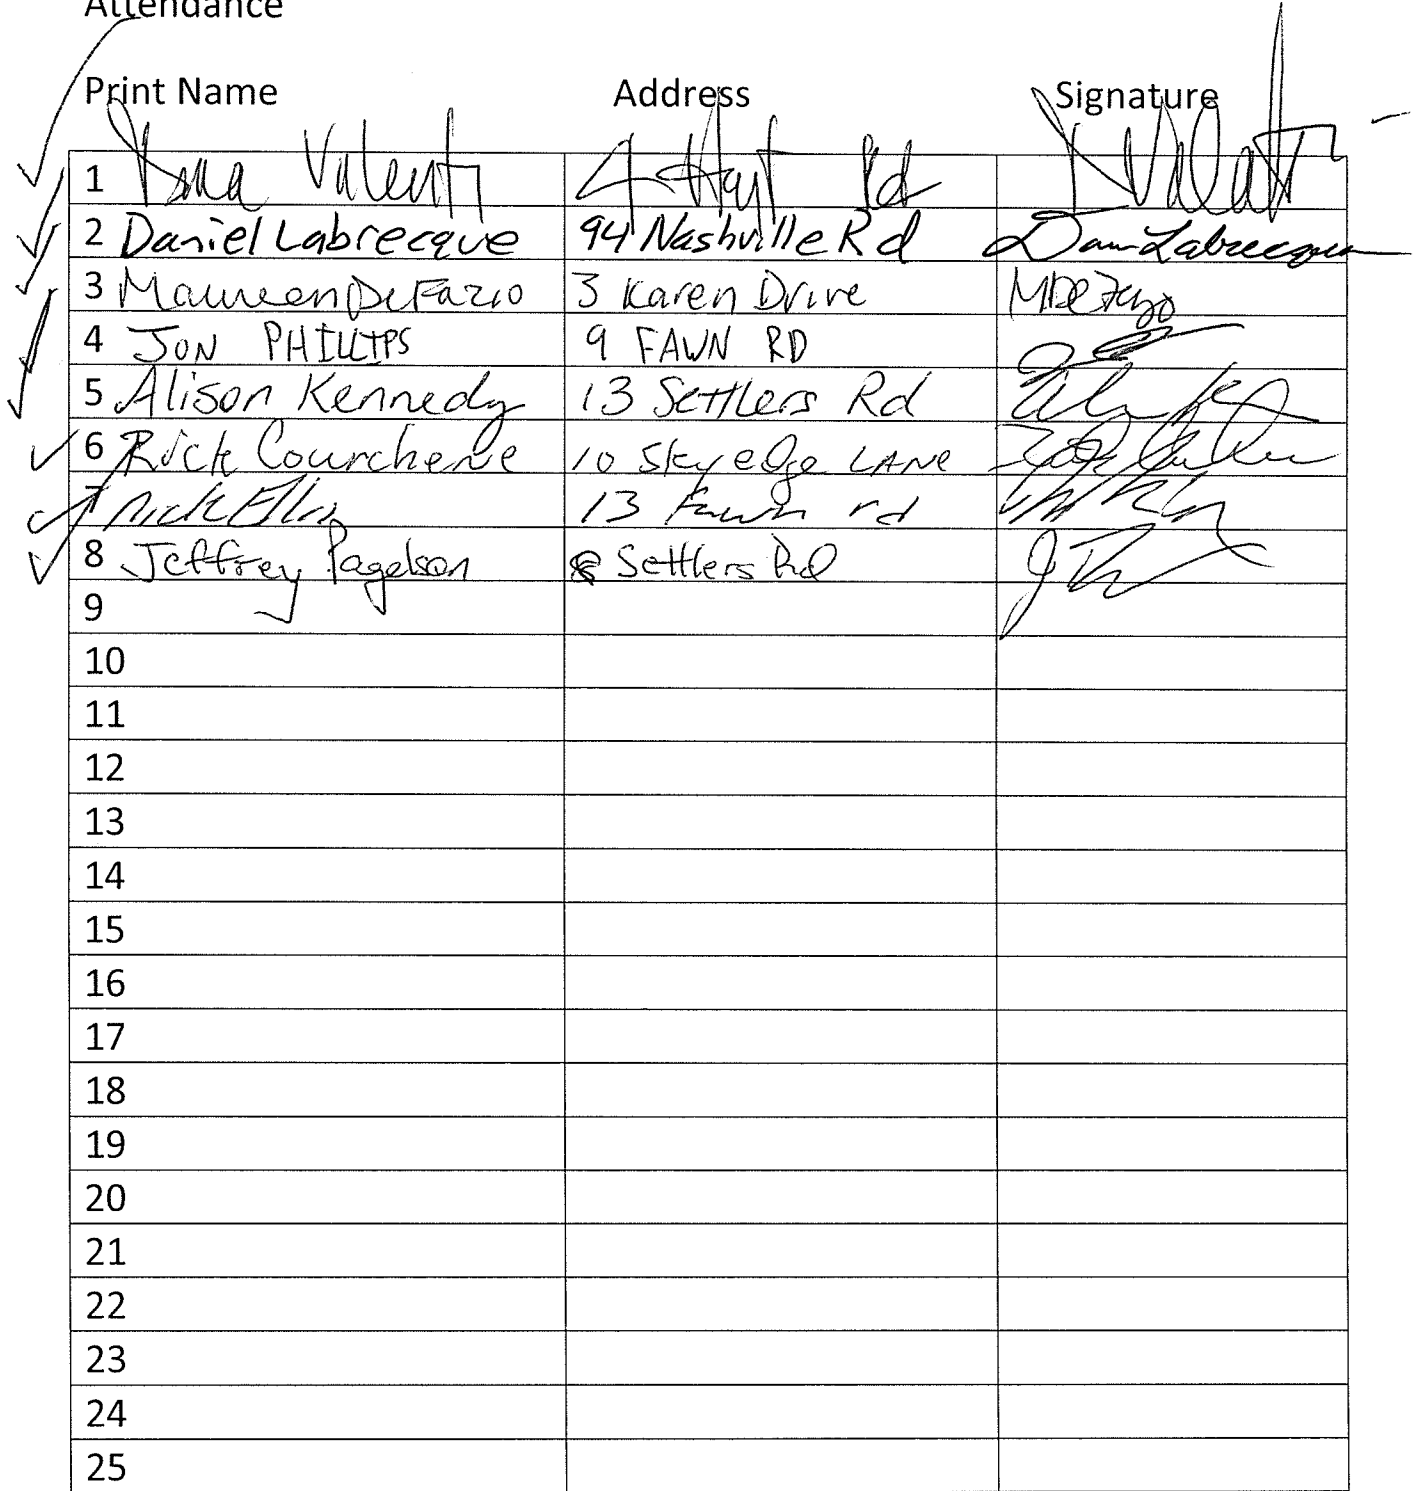 Attendance
Print Name Address Signature
1 Valenti 4 Hoyt Rd
2 Daniel Labrecque 94 Nashville Rd Dan Labrecque
3 Maureen DeFazio 3 Karen Drive MDeFazio
4 JON PHILLIPS 9 FAWN RD
5 Alison Kennedy 13 Settlers Rd
6 Rick Courchene 10 Skyedge LANE
7 nick Ellis 13 Fawn rd
8 Jeffrey Pagelson Settlers Rd
9
10
11
12
13
14
15
16
17
18
19
20
21
22
23
24
25